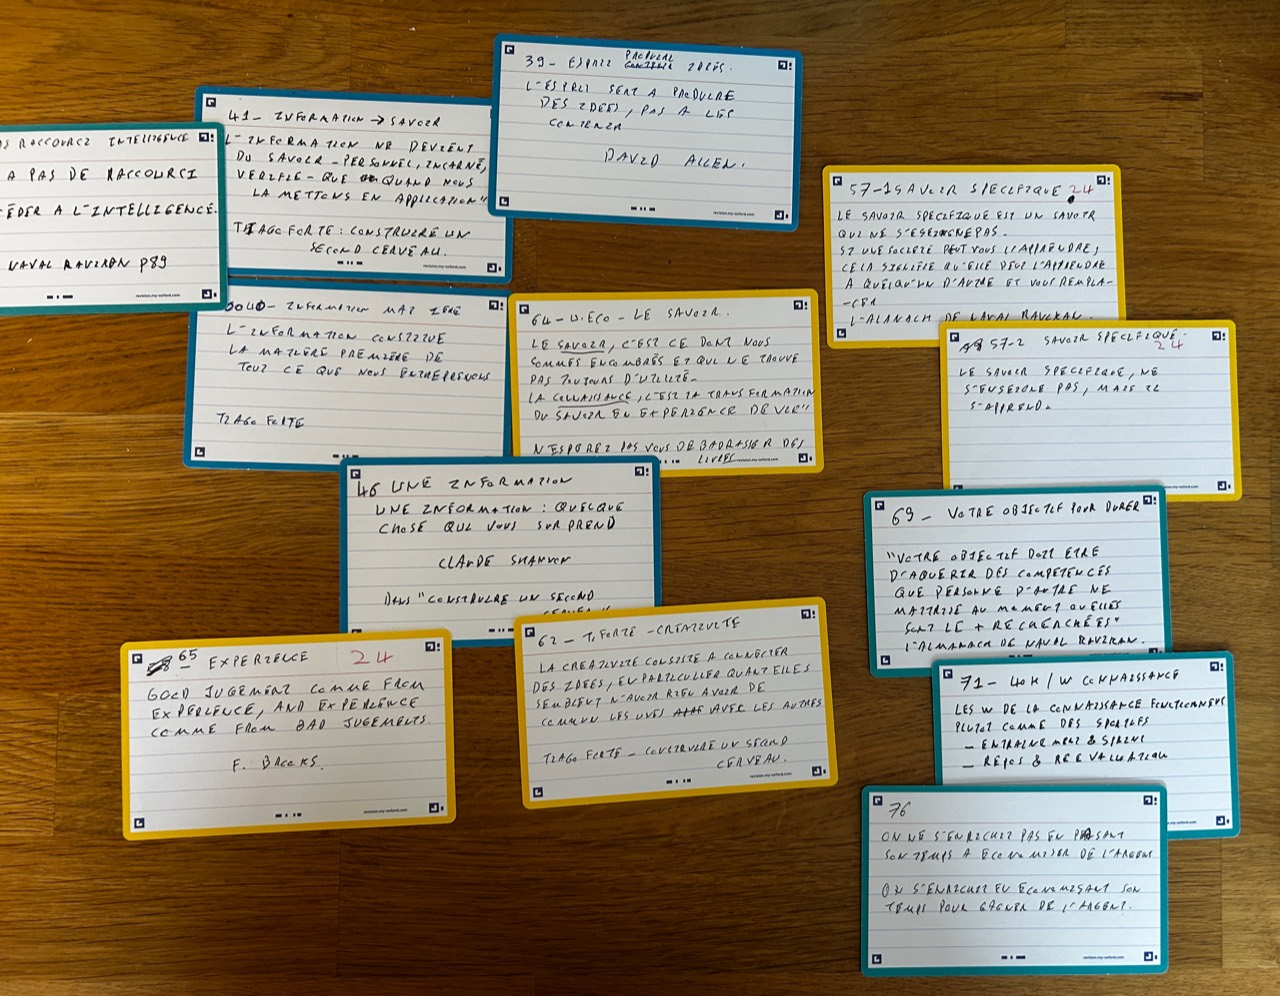 39 - ESPRIT PRODUCAL CONTENIR IDEES.
L'ESPRIT SERT A PRODUIRE
DES IDEES, PAS A LES
CONTENIR
DAVID ALLEN.
41 - INFORMATION → SAVOIR
L'INFORMATION NE DEVIENT
DU SAVOIR - PERSONNEL, INCARNÉ,
VERIFIE - QUE QUAND NOUS
LA METTONS EN APPLICATION"
TIAGO FORTE : CONSTRUIRE UN
SECOND CERVEAU.
revision.my-oxford.com
S RACCOURCI INTELLIGENCE
A PAS DE RACCOURCI
ÉDER A L'INTELLIGENCE.
NAVAL RAVIKAN P89
revision.my-oxford.com
40 - INFORMATION MAT 1ERE
L'INFORMATION CONSTITUE
LA MATIERE PREMIERE DE
TOUT CE QUE NOUS ENTREPRENONS
TIAGO FORTE
64 - U. ECO - LE SAVOIR.
LE SAVOIR, C'EST CE DONT NOUS
SOMMES ENCOMBRÉS ET QUI NE TROUVE
PAS TOUJOURS D'UTILITÉ.
LA CONNAISSANCE, C'EST LA TRANSFORMATION
DU SAVOIR EN EXPERIENCE DE VIE"
N'ESPEREZ PAS VOUS DEBARASSER DES
LIVRES
revision.my-oxford.com
57-1 SAVOIR SPECIFIQUE 24
LE SAVOIR SPECIFIQUE EST UN SAVOIR
QUI NE S'ENSEIGNE PAS.
SI UNE SOCIETE PEUT VOUS L'APPRENDRE,
CELA SIGNIFIE QU'ELLE PEUT L'APPRENDRE
A QUELQU'UN D'AUTRE ET VOUS REMPLA-
-CER
L'ALMANACH DE NAVAL RAVIKAN.
57-2 SAVOIR SPECIFIQUE.
24
LE SAVOIR SPECIFIQUE, NE
S'ENSEIGNE PAS, MAIS IL
S'APPREND.
revision.my-oxford.com
46 UNE INFORMATION
UNE INFORMATION : QUELQUE
CHOSE QUI VOUS SURPREND
CLAUDE SHANNON
DANS "CONSTRUIRE UN SECOND
CERVEAU"
69 - VOTRE OBJECTIF POUR DURER
"VOTRE OBJECTIF DOIT ETRE
D'AQUERIR DES COMPETENCES
QUE PERSONNE D'AUTRE NE
MAITRISE AU MOMENT OU ELLES
SONT LE + RECHERCHÉES"
L'ALMANACH DE NAVAL RAVIKAN.
65 EXPERIENCE 24
GOOD JUGEMENT COMME FROM
EXPERIENCE, AND EXPERIENCE
COMME FROM BAD JUGEMENTS.
F. BROOKS.
revision.my-oxford.com
62 - T. FORTE - CREATIVITE
LA CREATIVITE CONSISTE A CONNECTER
DES IDEES, EN PARTICULIER QUANT ELLES
SEMBLENT N'AVOIR RIEN AVOIR DE
COMMUN LES UNES AVEC LES AUTRES
TIAGO FORTE - CONSTRUIRE UN SECOND
CERVEAU.
revision.my-oxford.com
71 - 40H / W CONNAISSANCE
LES W DE LA CONNAISSANCE FONCTIONNENT
PLUTOT COMME DES SPORTIFS
- ENTRAINEMENT & SPRINT
- REPOS & REEVALUATION
76
ON NE S'ENRICHIT PAS EN PASSANT
SON TEMPS A ECONOMISER DE L'ARGENT
ON S'ENRICHIT EN ECONOMISANT SON
TEMPS POUR GAGNER DE L'ARGENT.
revision.my-oxford.com